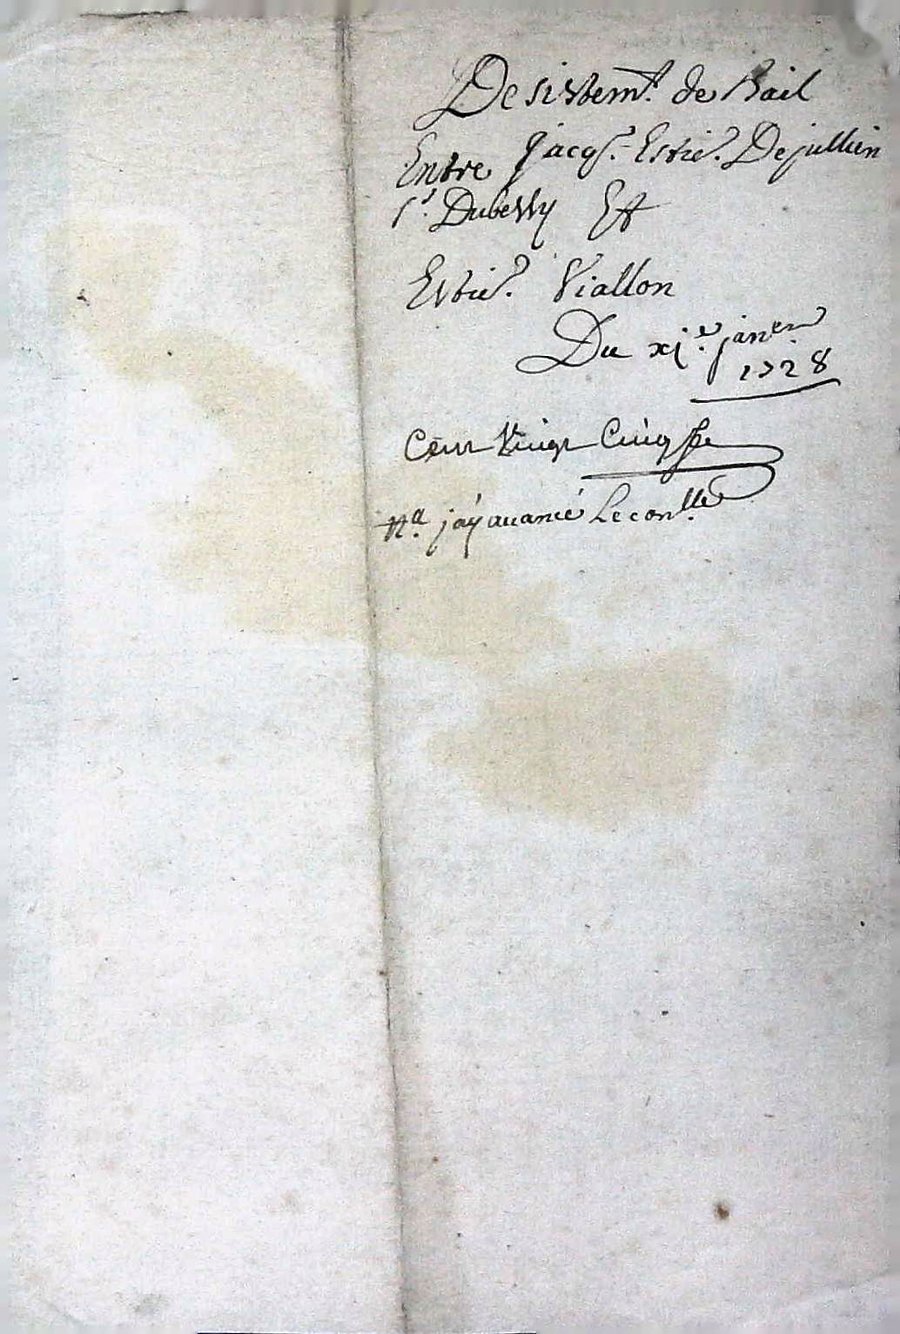 Desistemt. de Bail
Entre Jacqs. Estie. Dejullien
sr. Dubessy Et
Estie. Viallon
Du xje. janer.
1728
Cent vingt Cinq
Na. j'ay avancé Le con.lle